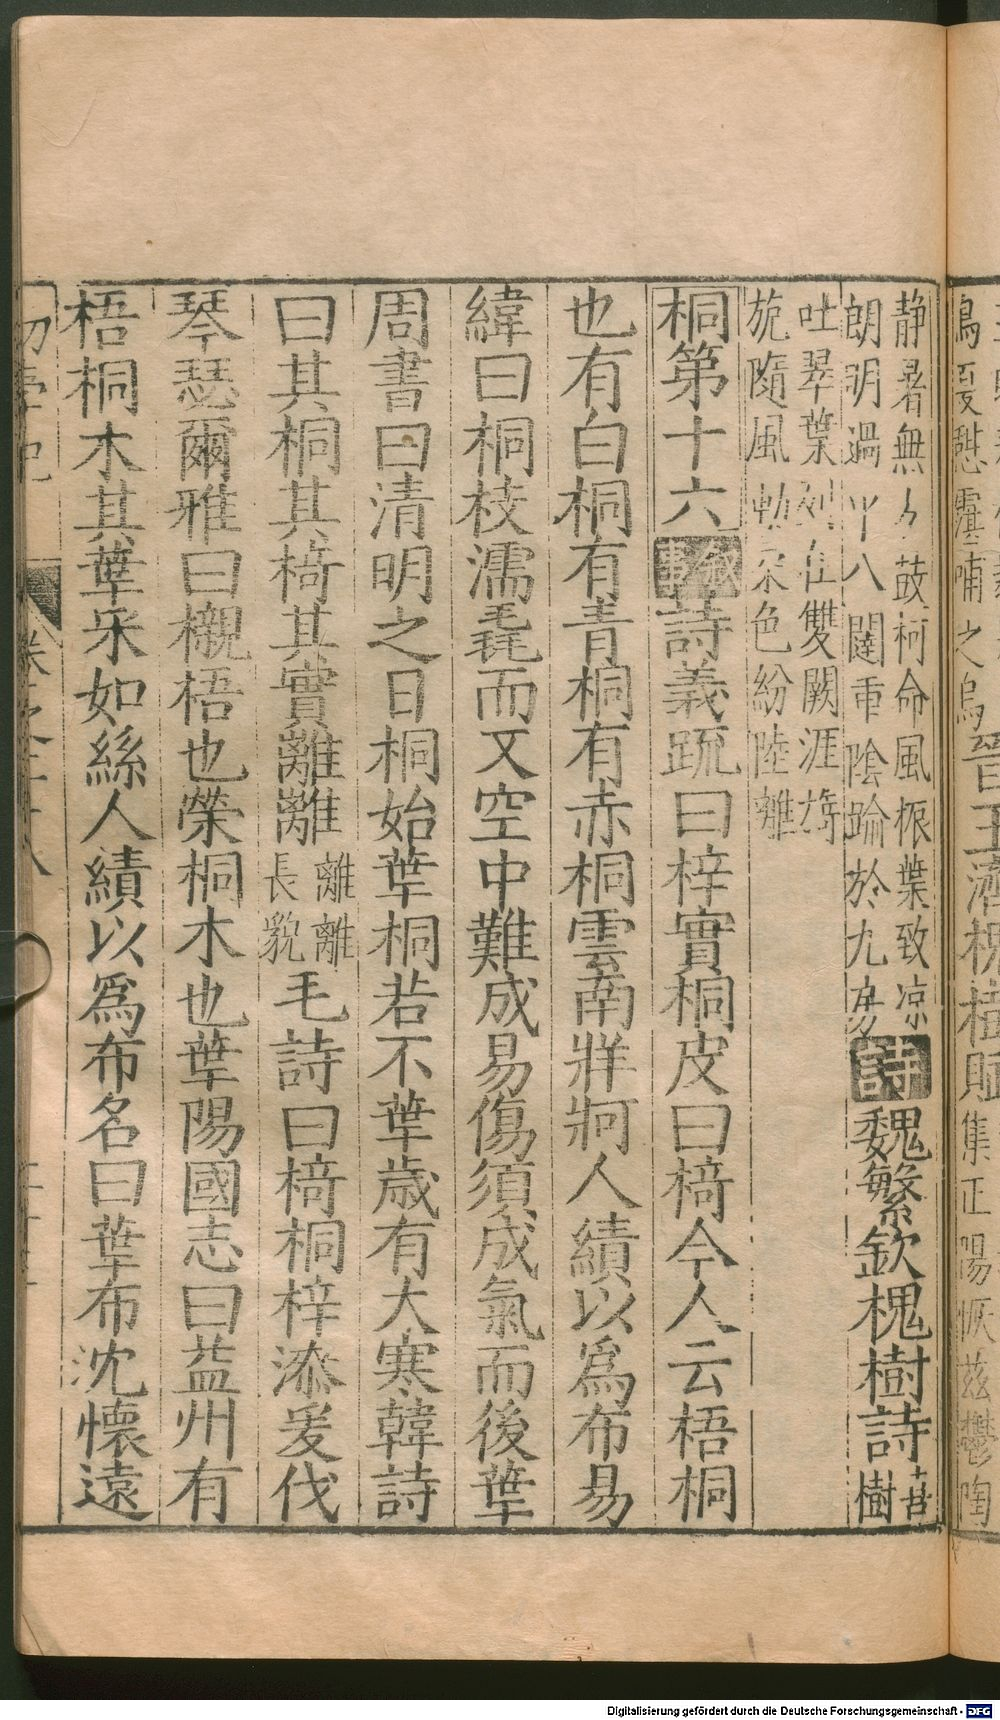 静暑無鼓柯命風振葉致凉
朗明過八闥重陰踰於九房詩魏繁欽槐樹詩嘉樹
吐翠葉列在雙闕涯旖
旎隨風動柔色紛陸離
桐第十六叙事詩義䟽曰梓實桐皮曰椅今人云梧桐
也有白桐有青桐有赤桐雲南牂牁人績以爲布易
緯曰桐枝濡毳而又空中難成易傷須成氣而後華
周書曰清明之日桐始華桐若不華歲有大寒韓詩
曰其桐其椅其實離離離離長貌毛詩曰椅桐梓漆爰伐
琴瑟爾雅曰櫬梧也榮桐木也華陽國志曰益州有
梧桐木其華采如絲人績以爲布名曰華布沈懷遠
Digitalisierung gefördert durch die Deutsche Forschungsgemeinschaft - DFG